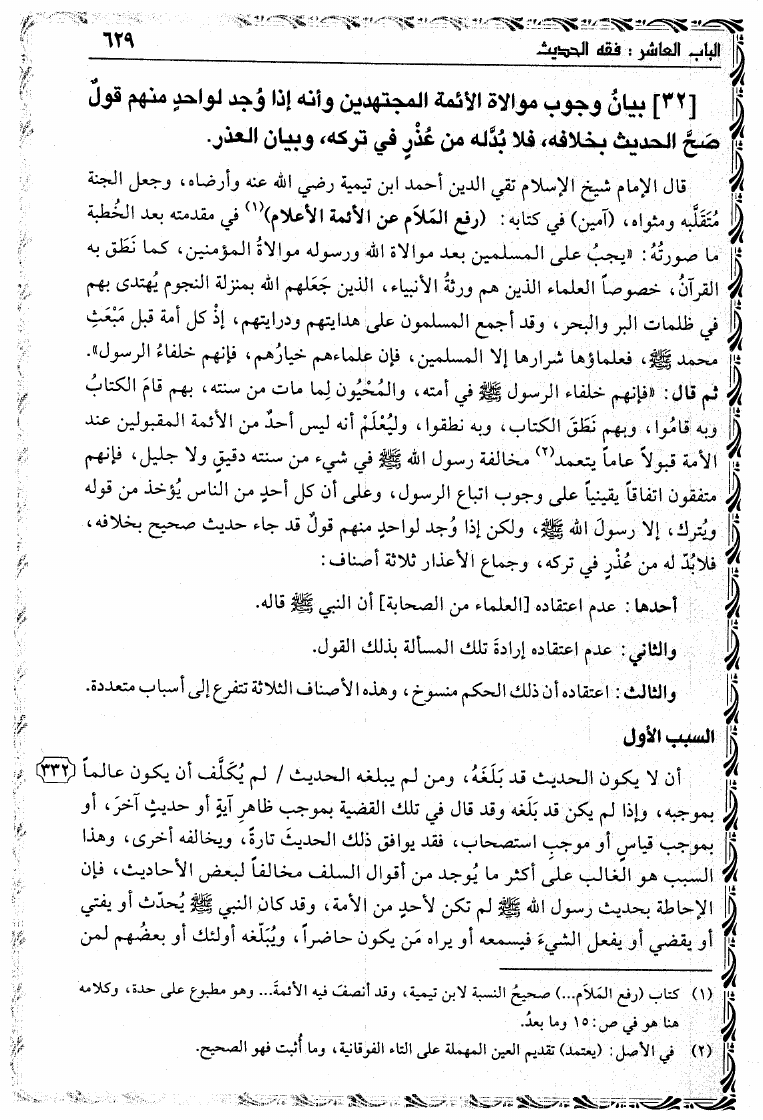 الباب العاشر : فقه الحديث
٦٢٩
[٣٢] بيانُ وجوب موالاة الأئمة المجتهدين وأنه إذا وُجد لواحدٍ منهم قولٌ
صَحَّ الحديث بخلافه، فلا بُدَّله من عُذْرٍ في تركه، وبيان العذر.
قال الإمام شيخ الإسلام تقي الدين أحمد ابن تيمية رضي الله عنه وأرضاه، وجعل الجنة
مُتَقَلَّبه ومثواه، (آمين) في كتابه: (رفع المَلَام عن الأئمة الأعلام)(١) في مقدمته بعد الخُطبة
ما صورتُهُ: «يجبُ على المسلمين بعد موالاة الله ورسوله موالاةُ المؤمنين، كما نَطَق به
القرآنُ، خصوصاً العلماء الذين هم ورثةُ الأنبياء، الذين جَعَلهم الله بمنزلة النجوم يُهتدى بهم
في ظلمات البر والبحر، وقد أجمع المسلمون على هدايتهم ودرايتهم، إذْ كل أمة قبل مَبْعَثِ
محمد ﷺ، فعلماؤها شرارها إلا المسلمين، فإن علماءهم خيارُهم، فإنهم خلفاءُ الرسول».
ثم قال: «فإنهم خلفاء الرسول ﷺ في أمته، والمُحْيُون لِما مات من سنته، بهم قامَ الكتابُ
وبه قامُوا، وبهم نَطَقَ الكتاب، وبه نطقوا، وليُعْلَمْ أنه ليس أحدٌ من الأئمة المقبولين عند
الأمة قبولاً عاماً يتعمد(٢) مخالفة رسول الله ﷺ في شيء من سنته دقيقٍ ولا جليل، فإنهم
متفقون اتفاقاً يقينياً على وجوب اتباع الرسول، وعلى أن كل أحدٍ من الناس يُؤخذ من قوله
ويُترك، إلا رسولَ الله ﷺ، ولكن إذا وُجد لواحدٍ منهم قولٌ قد جاء حديث صحيح بخلافه،
فلابُدّ له من عُذْرٍ في تركه، وجماع الأعذار ثلاثة أصناف:
أحدها: عدم اعتقاده [العلماء من الصحابة] أن النبي ﷺ قاله.
والثاني: عدم اعتقاده إرادةَ تلك المسألة بذلك القول.
والثالث: اعتقاده أن ذلك الحكم منسوخ، وهذه الأصناف الثلاثة تتفرع إلى أسباب متعددة.
السبب الأول
أن لا يكون الحديث قد بَلَغَهُ، ومن لم يبلغه الحديث / لم يُكَلَّف أن يكون عالماً (٣٣٢)
بموجبه، وإذا لم يكن قد بَلَغه وقد قال في تلك القضية بموجب ظاهرِ آيةٍ أو حديثٍ آخرَ، أو
بموجب قياسٍ أو موجبِ استصحاب، فقد يوافق ذلك الحديثَ تارةً، ويخالفه أخرى، وهذا
السبب هو الغالب على أكثر ما يُوجد من أقوال السلف مخالفاً لبعض الأحاديث، فإن
الإحاطة بحديث رسول الله ﷺ لم تكن لأحدٍ من الأمة، وقد كان النبي ﷺ يُحدّث أو يفتي
أو يقضي أو يفعل الشيءَ فيسمعه أو يراه مَن يكون حاضراً، ويُبَلّغه أولئك أو بعضُهم لمن
(١) كتاب (رفع المَلَام...) صحيحُ النسبة لابن تيمية، وقد أنصفَ فيه الأئمةَ... وهو مطبوع على حدة، وكلامه
هنا هو في ص: ١٥ وما بعدُ.
(٢) في الأصل: (يعتمد) تقديم العين المهملة على التاء الفوقانية، وما أُثبت فهو الصحيح.